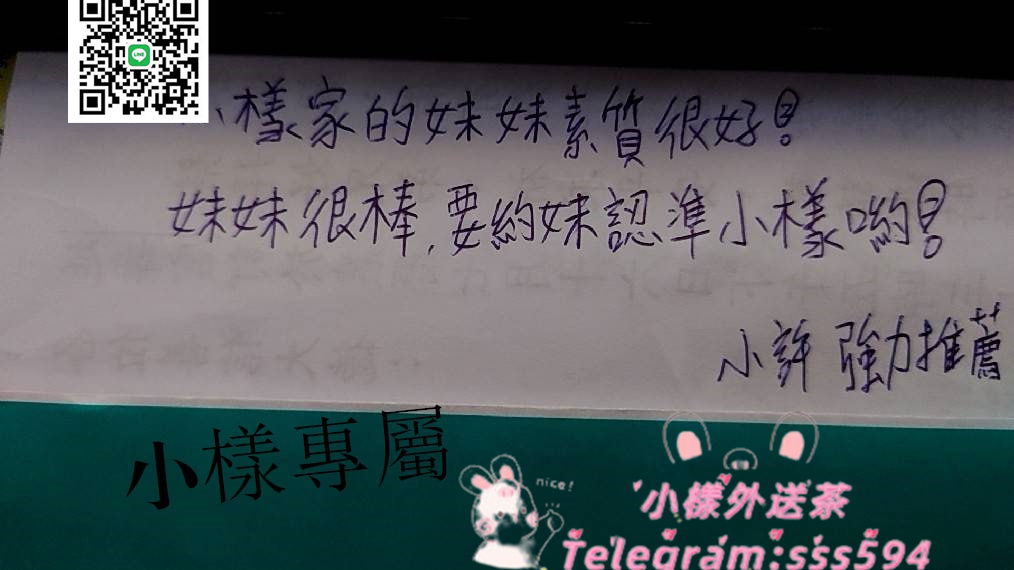 小樣家的妹妹素質很好!
妹妹很棒,要約妹認準小樣喲!
小許 強力推薦
小樣專屬
nice!
小樣外送茶
Telegram:sss594
LINE